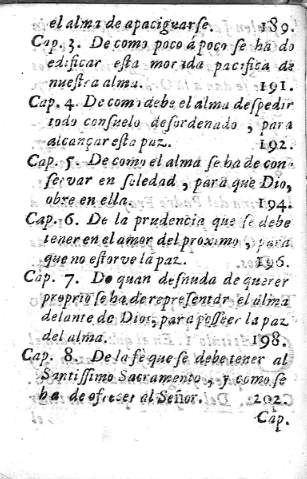 el alma de apaciguarse. 189.
Cap. 3. De como poco à poco se ha do
edificar esta morada pacifica da
nuestra alma. 191.
Cap. 4. De como debe el alma despedir
todo consuelo desordenado, para
alcançar esta paz. 192.
Cap. 5. De como el alma se ha de con
servar en soledad, para que Dio,
obre en ella. 194.
Cap. 6. De la prudencia que se debe
tener en el amor del proximo, para
que no estorve la paz. 196.
Cap. 7. De quan desnuda de querer
proprio se ha de representar el alma
delante do Dios, para posseer la paz
del alma. 198.
Cap. 8. De la fè que se debe tener al
Santissimo Sacramento, y como se
ha de ofrecer al Señor. 202.
Cap.